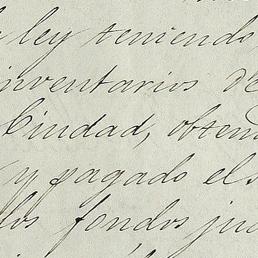 ley teniendo
inventarios de
Ciudad, obten
y pagado el
los fondos ju